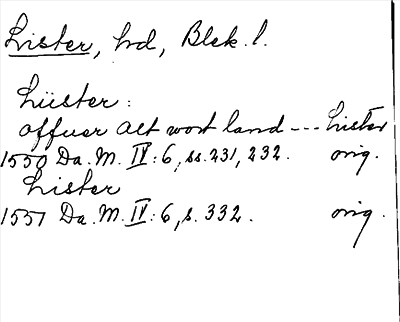 Lister, hd, Blek. l.
Lüster:
offuer alt wort land --- Lister
1550 Da. M. IV: 6, ss. 231, 232. orig.
Lister
1551 Da. M. IV: 6, s. 332. orig.